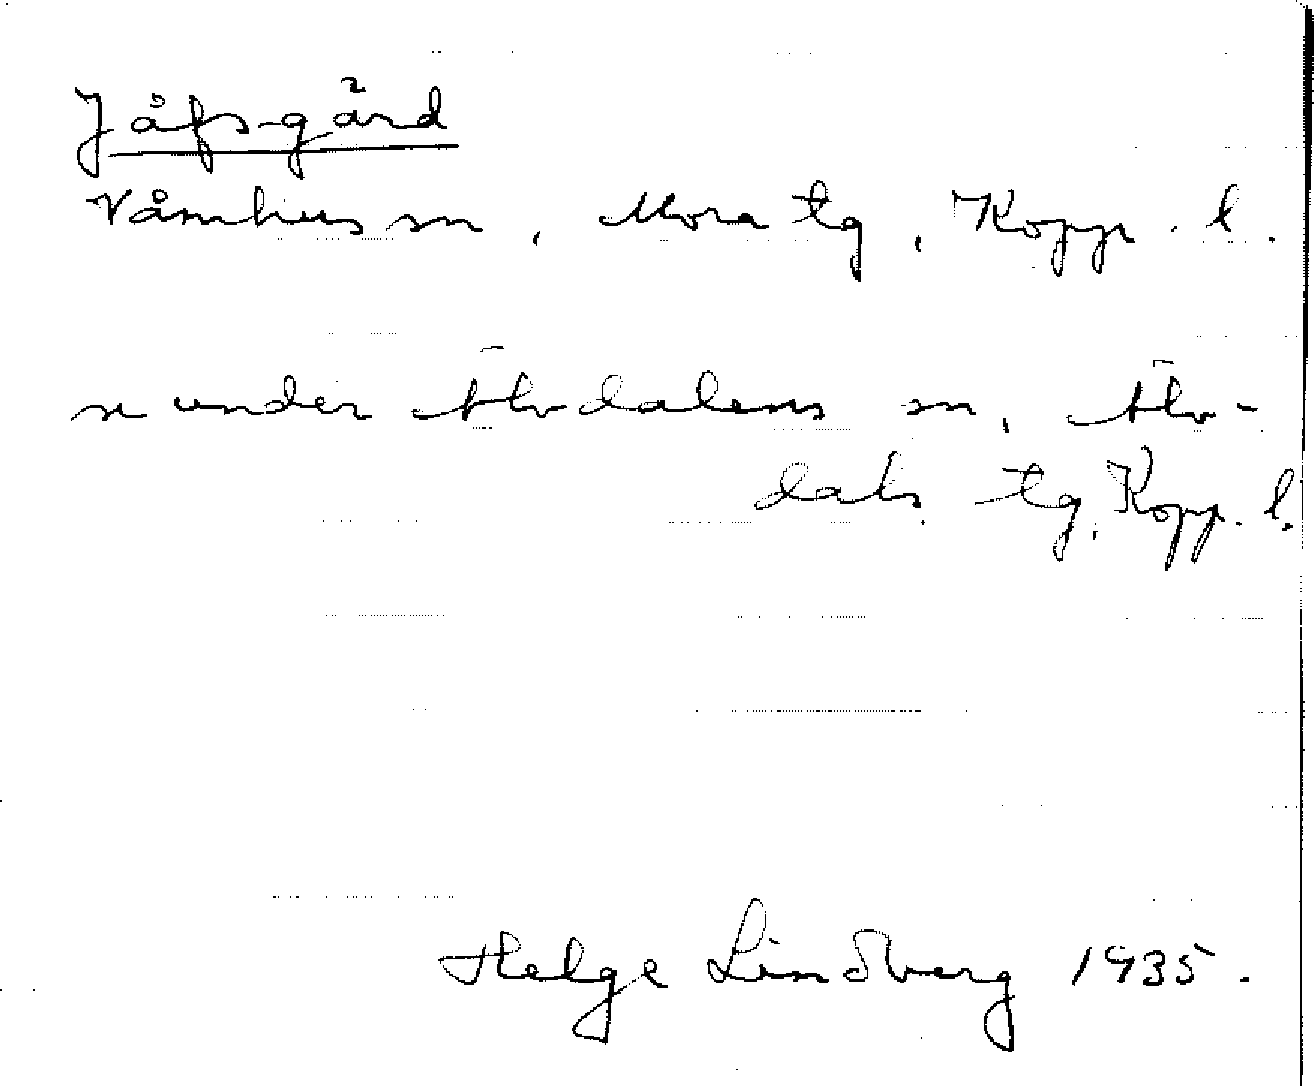 Jåfs-gård
Våmhus sn, Mora tg, Kopp. l.
se under Älvdalens sn, Älv-
dals tg, Kopp. l.
Helge Lindberg 1935.